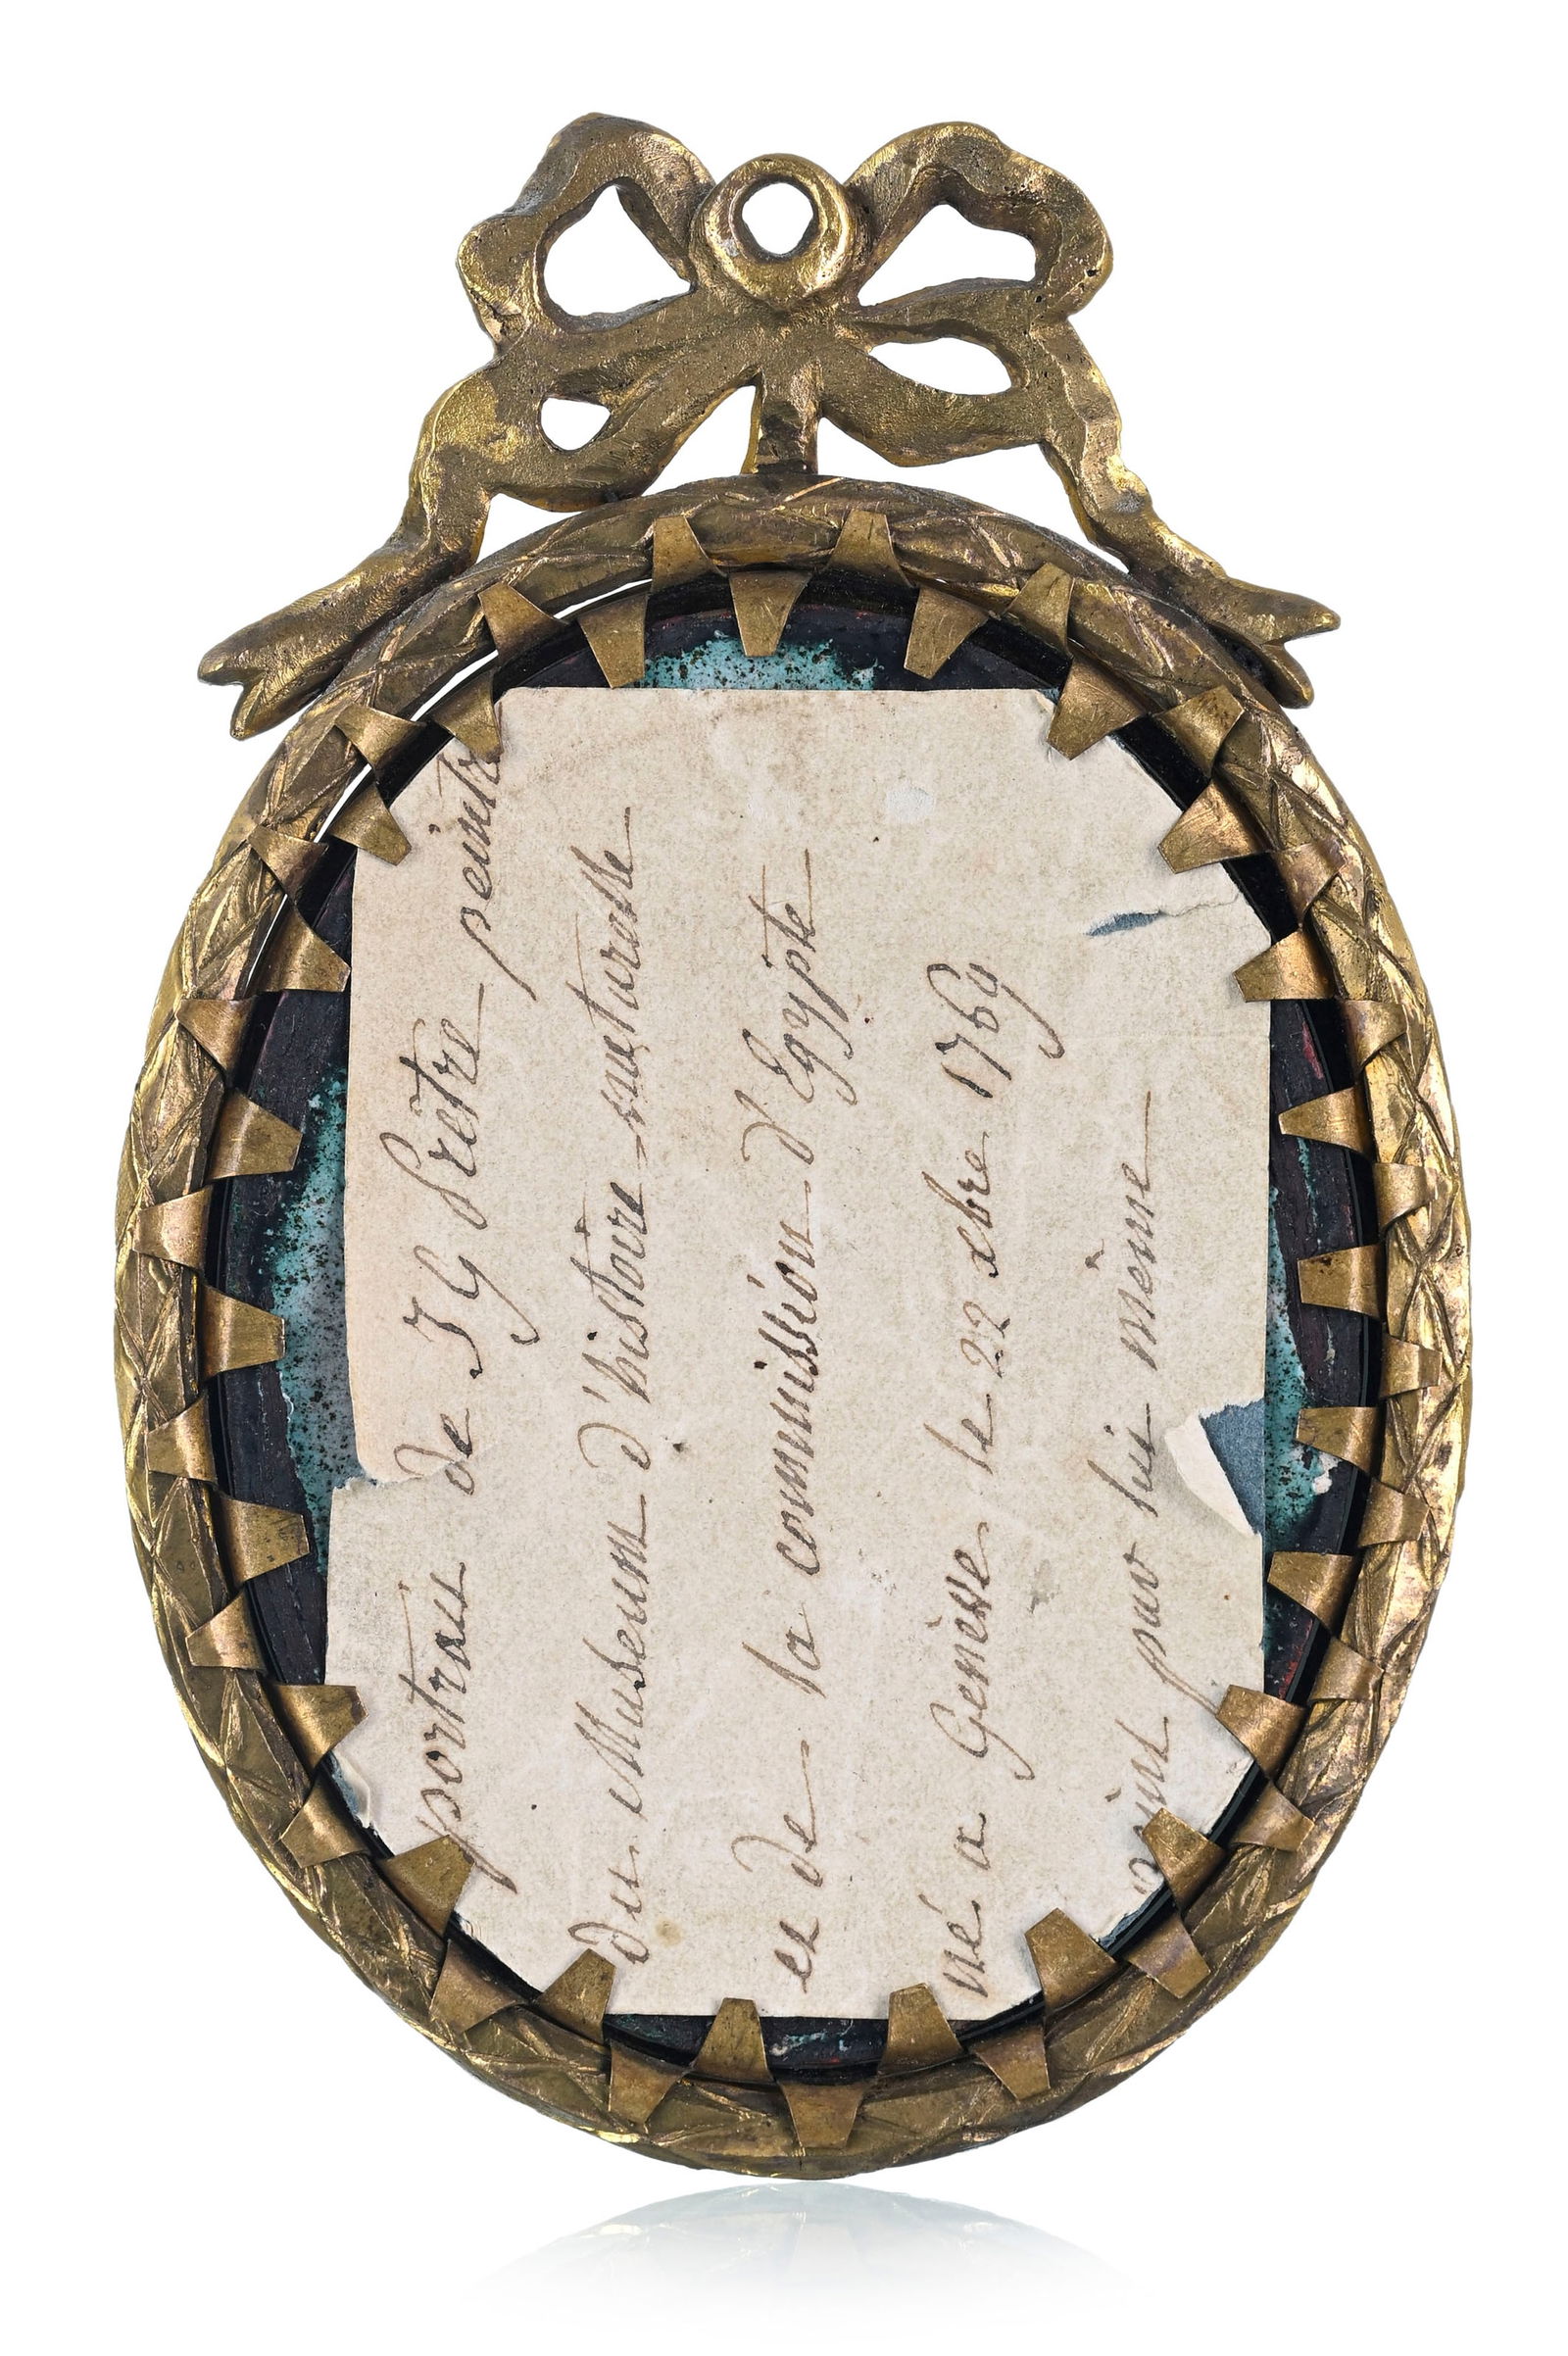 portrait de J G Prêtre peintre
du Museum d'histoire naturelle
et de la commission d'Egypte
né a Genève le 22 xbre 1769
peint par lui même